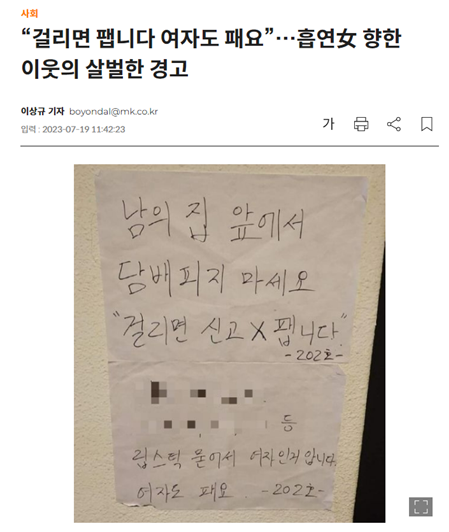 사회
“걸리면 팹니다 여자도 패요”…흡연女 향한
이웃의 살벌한 경고
이상규 기자 boyondal@mk.co.kr
입력 : 2023-07-19 11:42:23
가
남의 집 앞에서
담배피지 마세요
"걸리면 신고 X 팹니다."
-202호-
등
립스틱 묻어서 여자인거 압니다.
여자도 패요. -202호-